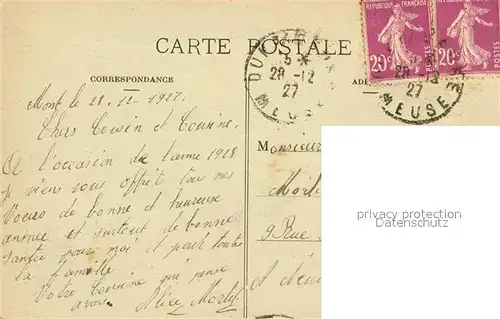 RÉPUBLIQUE FRANÇAISE
20c POSTES 20c POSTES
CARTE POSTALE
CORRESPONDANCE
28 -12
27
MEUSE
28 -12
27
MEUSE
Mont le 28.12.1927.
Chers Cousin et Cousine.
A l'occasion de l'année 1928
je viens vous offrir tous mes
voeux de bonne et heureuse
année et surtout de bonne
santée pour moi et pour toute
la famille
Votre Cousine qui pense
à vous. Alice
Monsieur
9 Rue
privacy protection
Datenschutz